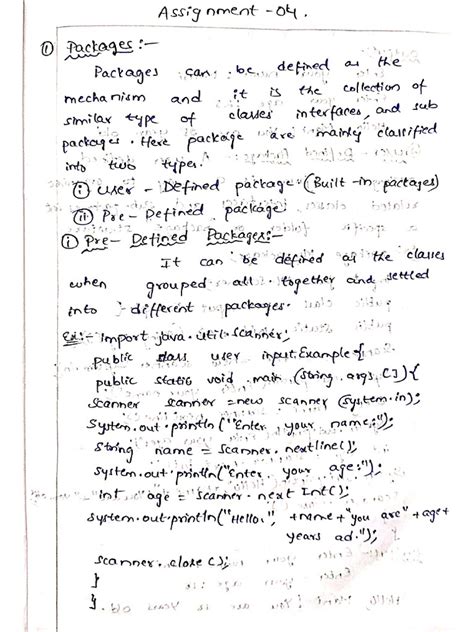 Assignment -04.
① Packages :-
Packages can be defined as the
mechanism and it is the collection of
similar type of classes interfaces, and sub
packages. Here package are mainly classified
into two types.
ⓘ User - Defined package (Built-in packages)
ⓘⓘ Pre - Defined package
ⓘ Pre - Defined Packages:-
It can be defined as the classes
when grouped all together and settled
into different packages.
Ex:- Import java.util.scanner;
public class user input Example {
public static void main (string args []) {
scanner scanner = new scanner (system.in);
System.out.println ("Enter your name:");
String name = scanner.nextline();
system.out.println ("Enter your age:");
int age = scanner.next Int();
system.out.println ("Hello," +name+ "you are" + age+
years ad.");
scanner.close ();
}
}.